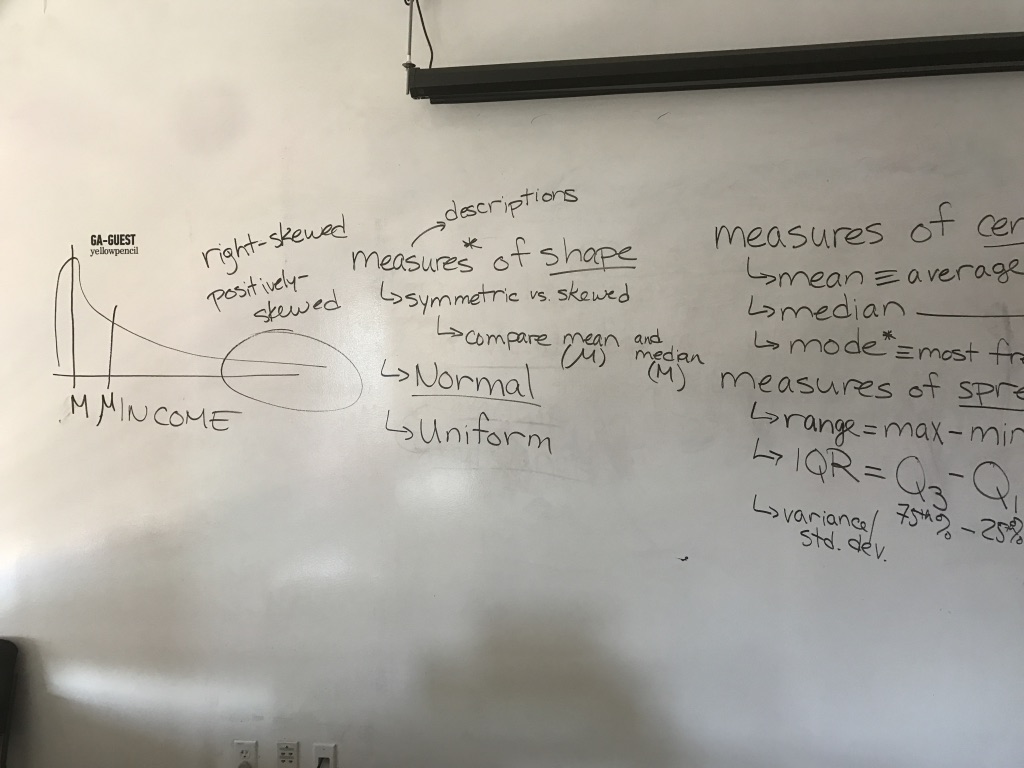 GA-GUEST
yellowpencil
right-skewed
positively-
skewed
M μ INCOME
descriptions
measures* of shape
↳symmetric vs. skewed
↳compare mean and median
(μ) (M)
↳Normal
↳Uniform
measures of
↳mean ≡ average
↳median
↳mode* ≡ most
measures of
↳range = max - min
↳IQR = Q3 - Q1
75th% - 25th%
↳variance/
std. dev.